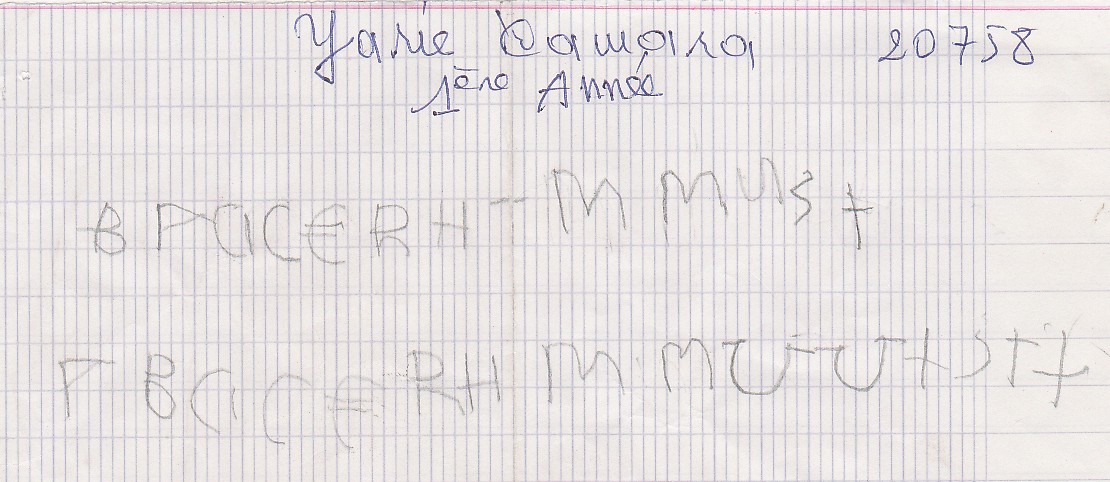 Yarie Camara 20758
1ère Année
B P a C E R H - M M U S t
P B a C E R H M M U - U t S T t